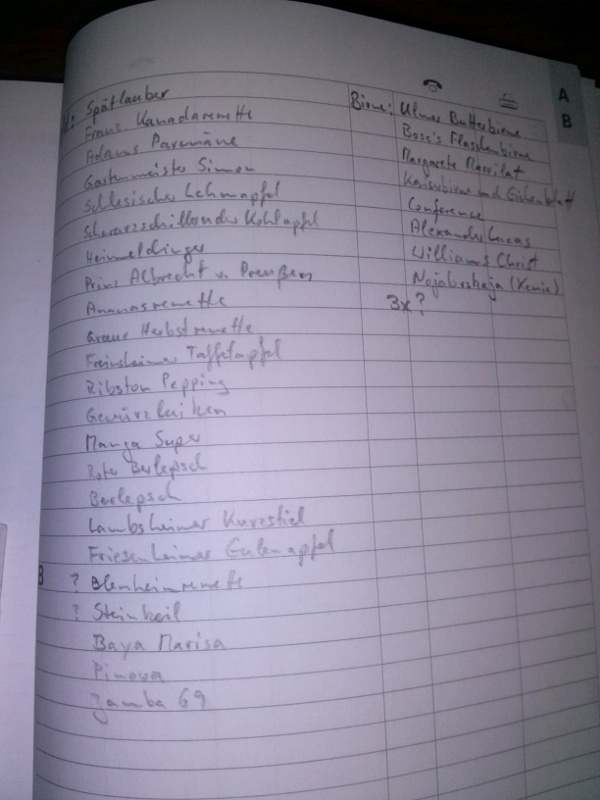 Spätlauber
Franz. Kanadarenette
Adams Parmäne
Gastenmeister Simon
Schlesischer Lehmapfel
Schwarzschillender Kohlapfel
Heimeldinger
Prinz Albrecht v. Preußen
Ananasrenette
Graue Herbstrenette
Freinsheimer Taffetapfel
Ribston Pepping
Gewürzluiken
Manga Super
Roter Berlepsch
Berlepsch
Lambsheimer Kurzstiel
Friesenheimer Eulenapfel
? Blenheimrenette
? Steinkeil
Baya Marisa
Pinova
Zamba 69
Birne: Ulmer Butterbirne
Bosc's Flaschenbirne
Margarete Marrilat
Conference
Alexander Lucas
Williams Christ
Nojabrskaja (Xenia)
3x ?
A
B